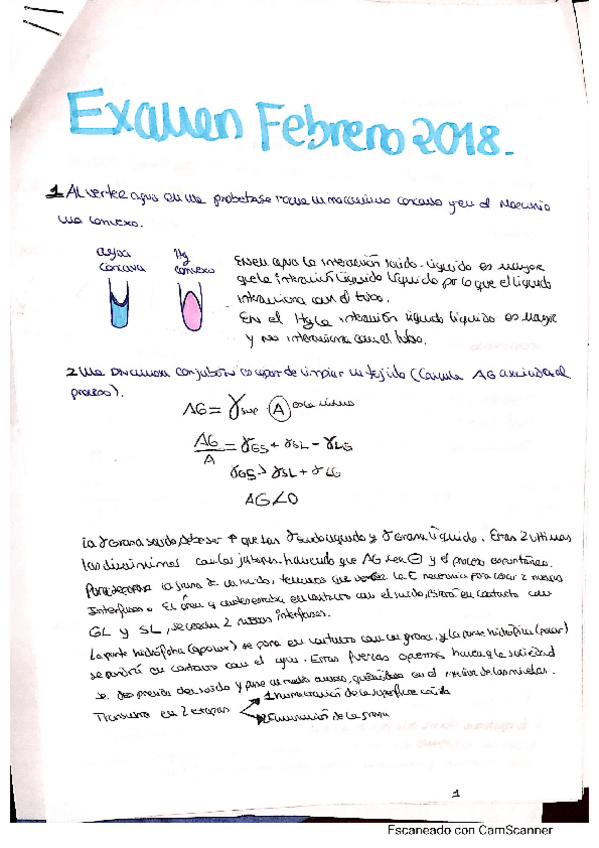 Examen Febrero 2018.
1 Al verter agua en una probeta se forma un menisco concavo y en el Mercurio
uno convexo.
agua
concava
Hg
convexo
En el agua la interacción solido-liquido es mayor
que la interacción liquido liquido por lo que el liquido
interacciona con el tubo.
En el Hg la interacción liquido liquido es mayor
y no interacciona con el tubo.
2 Una Disolucion con jabón es capaz de limpiar un tejido (Calcula ΔG asociada al
proceso).
ΔG = γsup (A) es la misma
ΔG/A = γGS + γSL - γLG
γGS > γSL + γLG
ΔG < 0
la γ Grasa solido debe ser ↑ que las γ solido liquido y γ Grasa liquido. Estas 2 ultimas
las disminuimos con los jabones haciendo que ΔG sea ⊖ y el proceso espontaneo.
la grasa de un solido, tenemos que la E necesaria para crear 2 nuevas
Interfases. El área q antes estaba en contacto con el suelo, Estará en contacto con
GL y SL, se crean 2 nuevas interfases.
La parte hidrófoba (apolar) se pone en contacto con la grasa, y la parte hidrófila (polar)
se pondrá en contacto con el agua. Estas fuerzas opuestas hacen q la suciedad
se desprenda del solido y pase al medio acuoso, en el interior de las micelas.
Transcurre en 2 etapas
1 Humectación de la superficie solida
2 Eliminación de la grasa
1
Escaneado con CamScanner